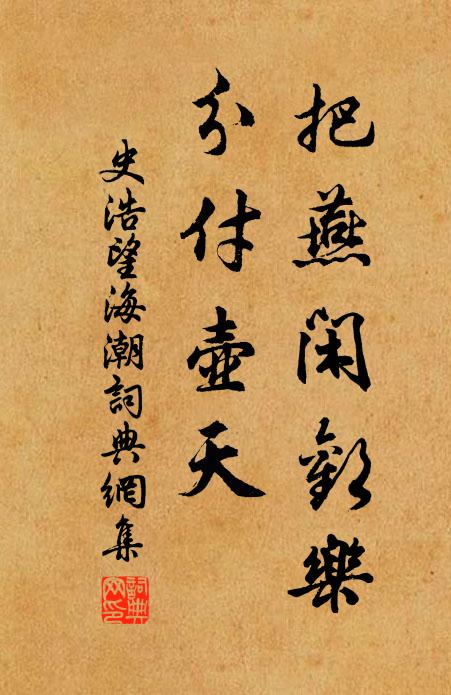 把燕閑歡樂
分付壺天
史浩望海潮詞典網集
詞典網印